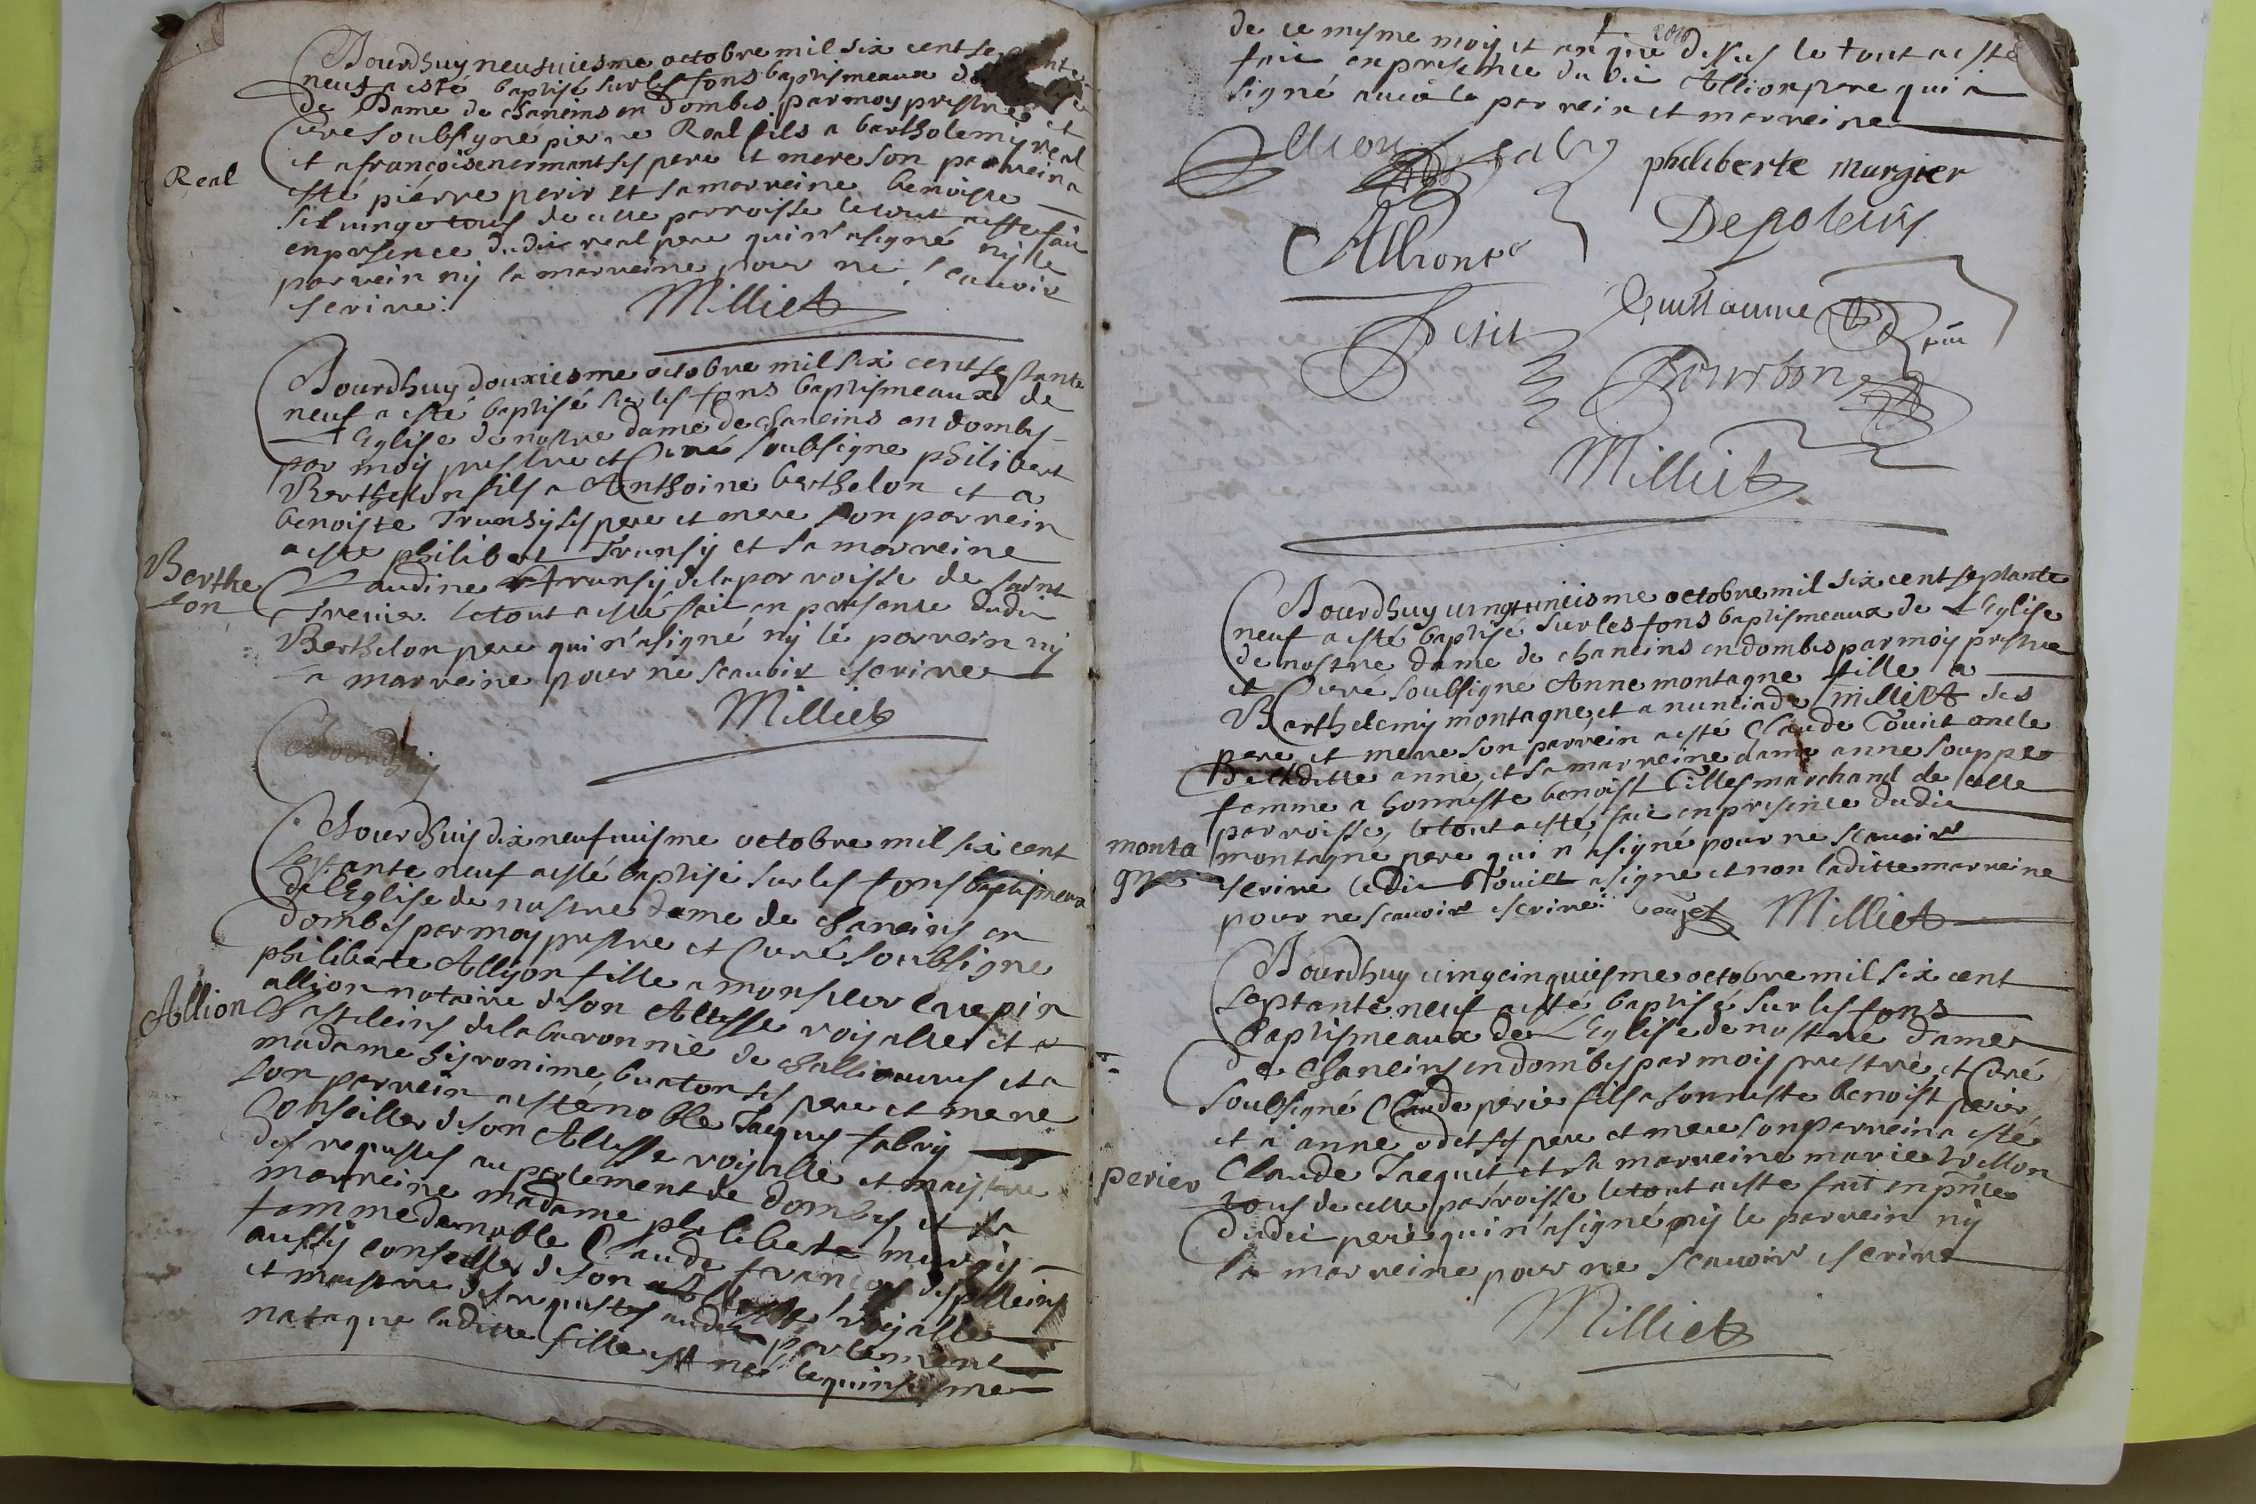 Jourdhuy neufuiesme octobre mil six cent septante
neuf a esté baptisé sur les fons baptismeaux
de Dame de chaneins en dombes par moy prestre et
cure soubsigné pierre Real fils a bartholemy real
et a françoise nermant ses pere et mere son parrein a
Real
esté pierre perir et sa marreine benoiste
tous de cette parroisse le tout a esté fait
en presence dudit real pere qui n'a signé ny le
parrein ny la marreine pour ne scauoir
scrire:
Milliet
Jourdhuy douxiesme octobre mil six cent septante
neuf a esté baptisé sur les fons baptismeaux de
l'Eglise de nostre dame de chaneins en dombes
par moy prestre et Curé soubsigne philibert
Berthelon fils a Anthoine berthelon et a
benoiste Trunsy ses pere et mere son parrein
a esté philibert Trunsy et sa marreine
Berthe
lon
Claudine Trunsy de la parroisse de saint
Treuier le tout a esté fait en presence dudit
Berthelon pere qui n'a signé ny le parrein ny
la marreine pour ne scauoir escrire
Milliet
Jourdhuy
Jourdhuy dix neufuiesme octobre mil six cent
septante neuf a esté baptisé sur les fons baptismeaux
de l'Eglise de nostre dame de chaneins en
dombes par moy prestre et Curé soubsigne
philiberte Allyon fille a monsieur Crepin
Allion
allion notaire de son Altesse royalle et
Chasteleins de la baronnie de challiouures et a
madame hyronime buaton ses pere et mere
son parrein a esté noble Jacques fabry
Conseiller de son Altesse royalle et maistre
des requestes au parlement de dombes et sa
marreine madame philiberte murgy
femme de noble Claude françois despolleins
aussy conseiller de son Altesse royalle
et maistre des requestes audit parlement
nata que laditte fille est née le quinsiesme
de ce mesme mois et an que dessus le tout a esté
fait en presence dudit Allion pere qui a
signé auec le parrein et marreine
Allion
fabry
philiberte murgier
Allion
Depoleins
Petit
Guillaume
Bourbon
Milliet
Jourdhuy uingtuniesme octobre mil six cent septante
neuf a esté baptisé sur les fons baptismeaux de l'Eglise
de nostre dame de chaneins en dombes par moy prestre
et Curé soubsigné Anne montagne fille a
Barthelemy montagne et a nunciade milliet ses
pere et mere son parrein a esté Claude Touiet oncle
de laditte anne, et sa marreine dame anne souppe
femme a honneste benoist Tilles marchand de cette
parroisse, le tout a esté fait en presence dudit
monta
gne
montagne pere qui n'a signé pour ne scauoir
scrire ledit Touiet a signe et non laditte marreine
pour ne scauoir escrire: Milliet
Jourdhuy uingcinquiesme octobre mil six cent
septante neuf a esté baptisé sur les fons
baptismeaux de L'Eglise de nostre dame
de chaneins en dombes par mois prestre, et Curé
soubsigné Claude perier fils a honneste benoist perier
et a anne odet ses pere et mere son parrein a esté
perier
Claude Jaquet et sa marreine marie
tous de cette parroisse le tout a esté fait en p̃nce
dudit perier qui n'a signé ny le parrein ny
la marreine pour ne scauoir escrire
Milliet